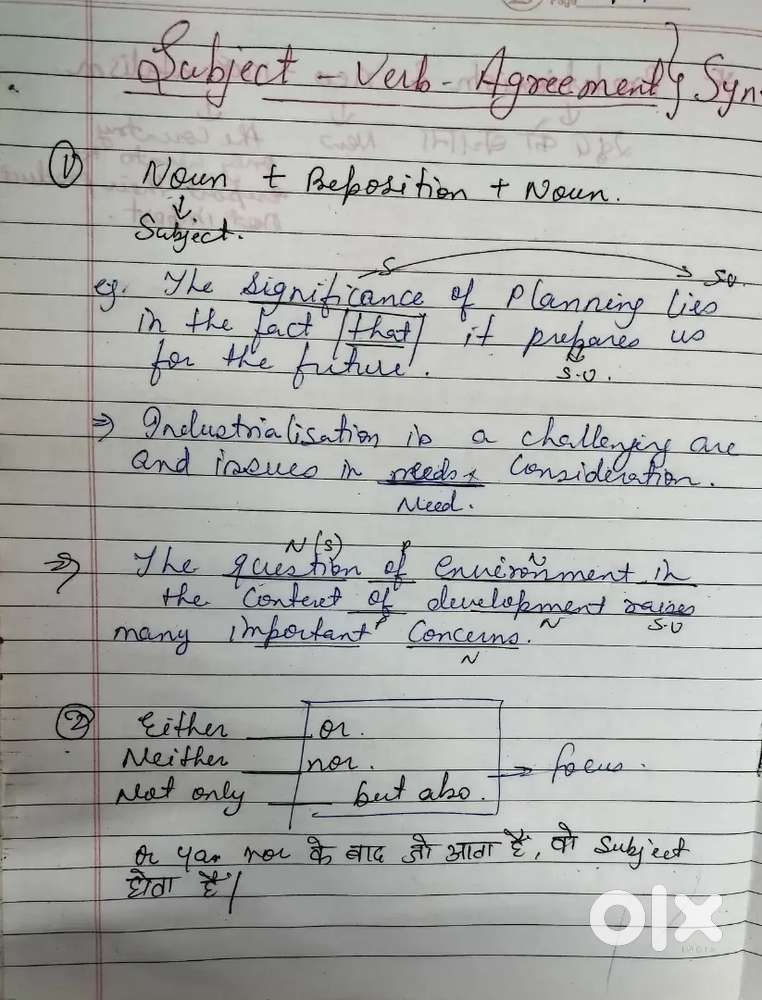 Subject - Verb - Agreement } Syn
① Noun + Preposition + Noun.
↓
Subject.
S S.V.
eg. The significance of planning lies
in the fact that it prepares us
for the future. S.V.
⇒ Industrialisation is a challenging are
and issues in needs x Consideration.
Need.
N(S) P N
⇒ The question of environment in
the context of development raises
many important Concerns. P N S.V
N
② Either ___ or.
Neither ___ nor. → focus.
Not only ___ but also.
or yar nor के बाद जो आता है, वो Subject
होता है।
olx
INDIA